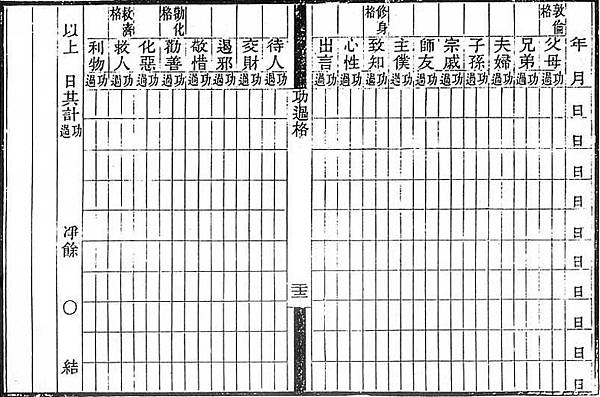 年月
日
日
日
日
日
日
日
日
日
日
敦倫格
父母功過
兄弟功過
夫婦功過
子孫功過
宗戚功過
師友功過
主僕功過
修身格
致知功過
心性功過
出言功過
功過格
待人功過
交財功過
遏邪功過
敬惜功過
勸化格
勸善功過
化惡功過
救濟格
救人功過
利物功過
以上 日其計功過 凈餘 〇 結